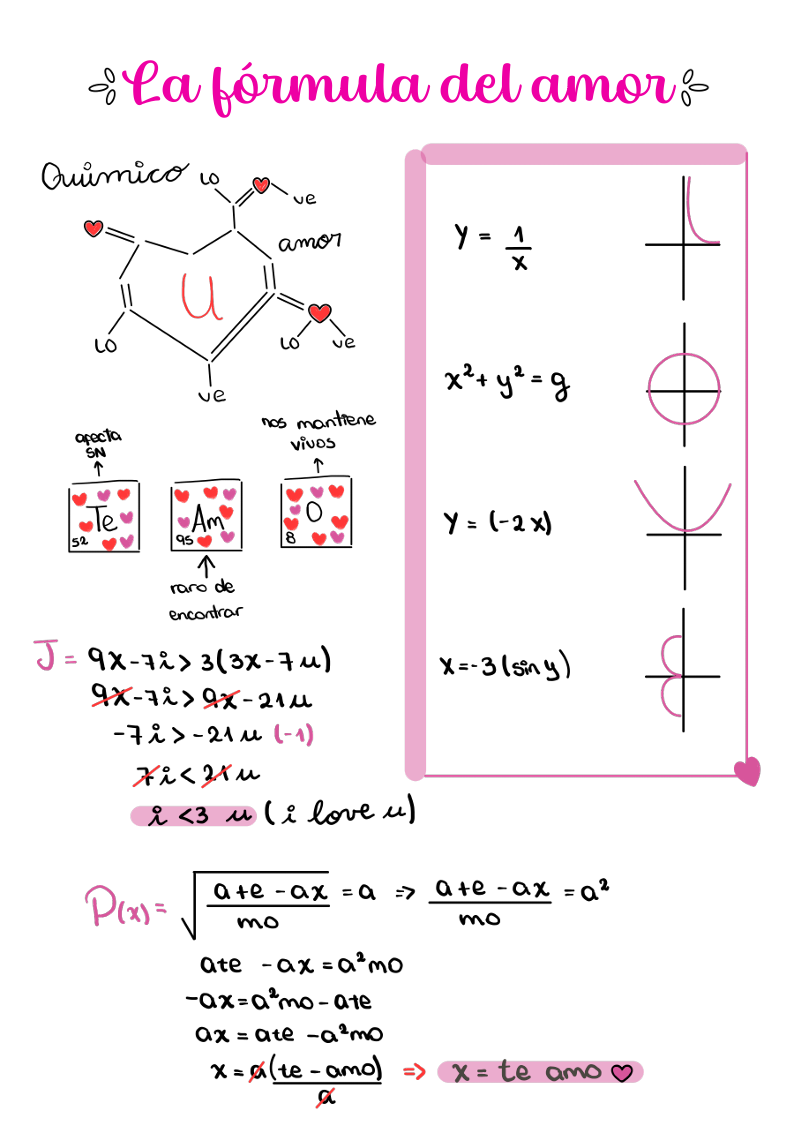 La fórmula del amor
Químico
LO
ve
amor
U
LO
ve
LO
ve
afecta
SN
nos mantiene
vivos
Te
52
Am
95
O
8
raro de
encontrar
y = 1/x
x²+ y² = 9
y = (-2x)
x=-3(sin y)
J = 9x-7i > 3(3x-7u)
9x-7i > 9x-21u
-7i > -21u (-1)
7i < 21u
i <3 u (i love u)
P(x) = √((ate - ax)/mo) = a => (ate - ax)/mo = a²
ate - ax = a²mo
-ax = a²mo - ate
ax = ate - a²mo
x = a(te - amo)/a => x = te amo